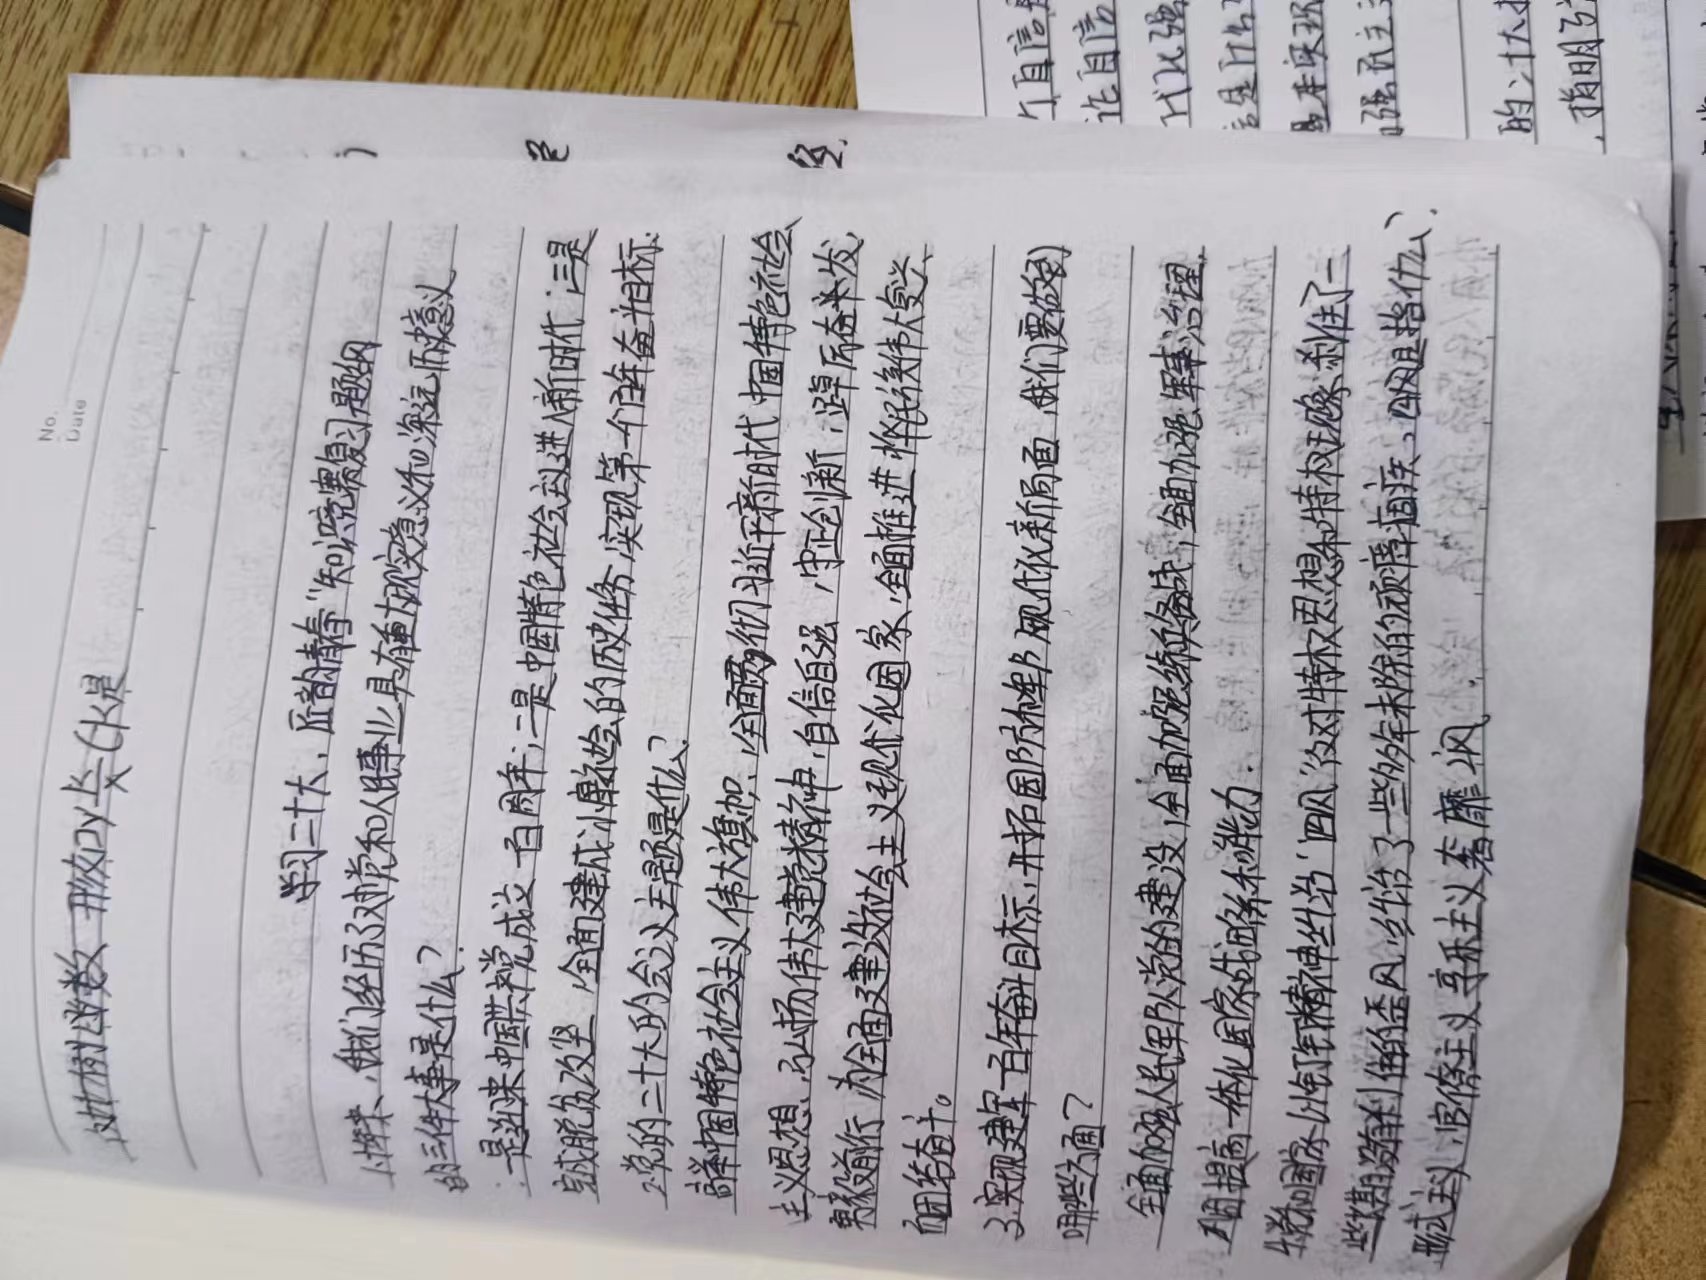 No.
Date
学习二十大，匠韵青春"知识竞赛复习题纲
1.十年来，我们经历了对党和人民事业具有重大现实意义和深远历史意义
的三件大事是什么？
一是迎来中国共产党成立一百周年，二是中国特色社会主义进入新时代，三是
完成脱贫攻坚，全面建成小康社会的历史任务，实现第一个百年奋斗目标.
2.党的二十大的会议主题是什么？
高举中国特色社会主义伟大旗帜，全面贯彻习近平新时代中国特色社会
主义思想，弘扬伟大建党精神，自信自强，守正创新，踔厉奋发，
勇毅前行 为全面建设社会主义现代化国家、全面推进中华民族伟大复兴
而团结奋斗。
3.实现建军一百年奋斗目标，开拓国防和军队现代化新局面，我们要做到
哪些方面？
全面加强人民军队党的建设，全面加强练兵备战，全面加强军事治理，
巩固提高一体化国家战略体系和能力.
4.党和国家以钉钉子精神纠治"四风"，反对特权思想和特权现象，刹住了一
些长期没刹住的歪风，纠治了一些多年未除的顽瘴痼疾、四风是指什么、
形式主义，官僚主义，享乐主义，奢靡之风.